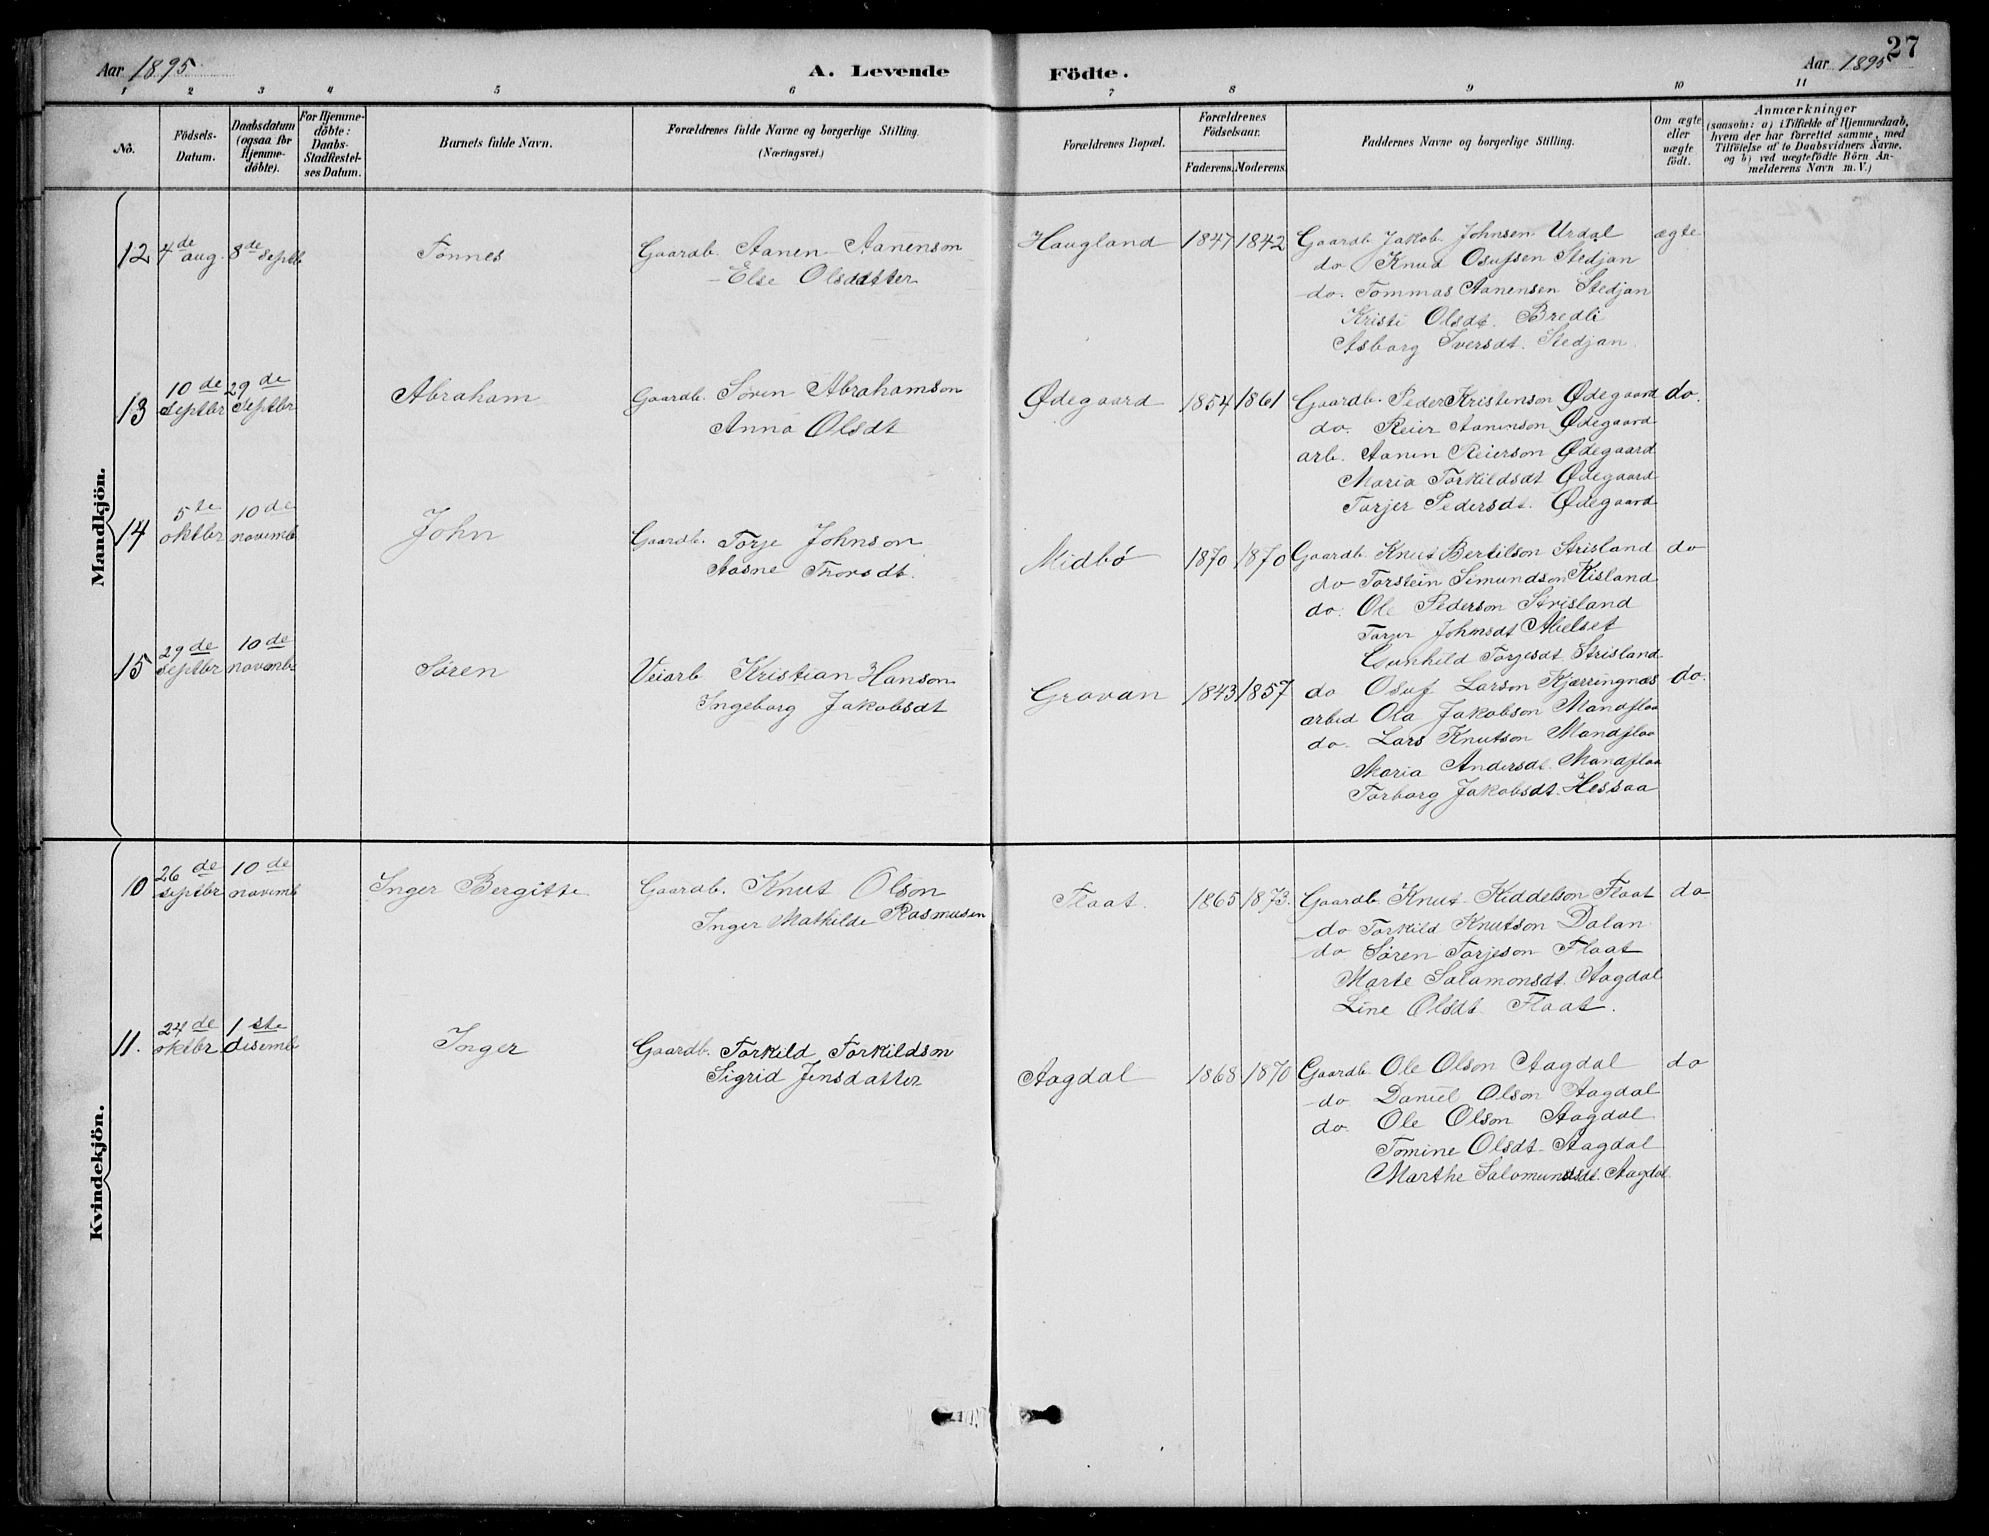 27
Aar 1895
A. Levende Födte.
Aar 1895
1 2 3 4 5 6 7 8 9 10 11
No.
Födsels-Datum.
Daabsdatum (ogsaa for Hjemme-døbte).
For Hjemme-døbte: Daabs-Stadfæstel-ses Datum.
Barnets fulde Navn.
Forældrenes fulde Navne og borgerlige Stilling. (Næringsvei.)
Forældrenes Bopæl.
Forældrenes Födselsaar.
Faderens. Moderens.
Faddernes Navne og borgerlige Stilling.
Om ægte eller uægte født.
Anmærkninger
(saasom: a) i Tilfælde af Hjemmedaab,
hvem der har forrettet samme, med
Tilföielse af to Daabsvidners Navne,
og b) ved uægtefödte Börn An-
melderens Navn m. V.)
Mandkjön.
12 4de aug. 8de septb Tønnes Gaardb. Aanen Aanenson Haugland 1847 1842 Gaardb. Jakob Johnsen Urdal ægte
Else Olsdatter do Knud Osufsen Stedjan
do. Tommas Aanensen Stedjan
Kristi Olsdt. Bredli
Asborg Iversdt. Stedjan
13 10de septbr 29de septbr Abraham Gaardb. Søren Abrahamson Ødegaard 1854 1861 Gaardb. Peder Kristenson Ødegaard do.
Anna Olsdt do. Reier Aanenson Ødegaard
arb. Aanen Reierson Ødegaard
Maria Torkildsdt Ødegaard
Torjer Pedersdt. Ødegaard
14 5te oktbr 10de novemb John Gaardb. Torje Johnson Midbø 1870 1870 Gaardb. Knut Bertilson Strisland do
Aasne Thorsdt. do Torstein Simundson Kisland
do. Ole Pederson Strisland
Torjer Johnsdt
Gunhild Torjesdt. Strisland
15 29de septbr 10de novemb Søren Veiarb Kristian Hanson Grovan 1843 1857 do Osuf Larson Kjærringnæs do.
Ingeborg Jakobsdt arbeid Ola Jakobson Mandflaa
do. Lars Knutson Mandflaa
Maria Andersdt. Mandflaa
Torborg Jakobsdt. Hessaa
Kvindekjön.
10 26de septbr 10de novemb Inger Bergitte Gaardb. Knut Olson Flaat. 1865 1873. Gaardb. Knut Kiddelson Flaat do
Inger Mathilde Rasmusen do Torkild Knutson Dalan
do Søren Torjeson Flaat
Marte Salamonsdt. Aagdal
Line Olsdt Flaat.
11. 24de oktbr. 1ste disemb Inger Gaardb. Torkild Torkildson Aagdal 1868 1870 Gaardb. Ole Olson Aagdal do
Sigrid Jensdatter do Daniel Olson Aagdal
do. Ole Olson Aagdal
Tomine Olsdt. Aagdal
Marthe Salomundsdt. Aagdal